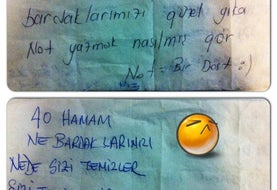 bardaklarımızı güzel yıka
Not yazmak nasılmış gör
Not = Bir Dost :)
40 HAMAM
NE BARDAKLARINIZI
NEDE SİZİ TEMİZLER
SİZİ